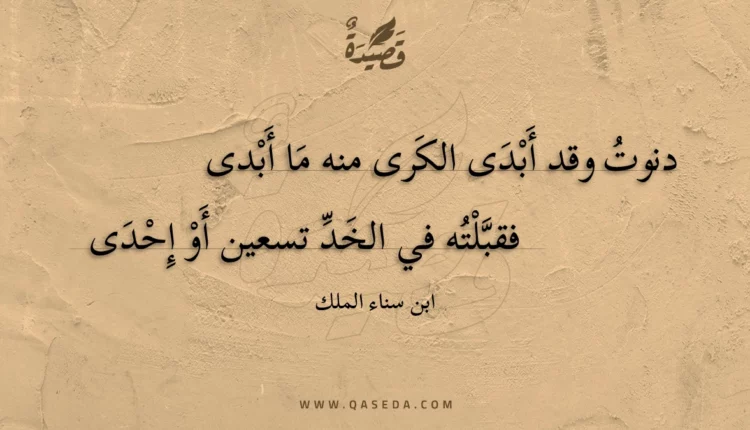 قَصِيْدَةٌ
دنوتُ وقد أَبْدَى الكَرى منه مَا أَبْدى
فقبَّلْتُه في الخَدِّ تسعين أَوْ إِحْدَى
ابن سناء الملك
WWW.QASEDA.COM